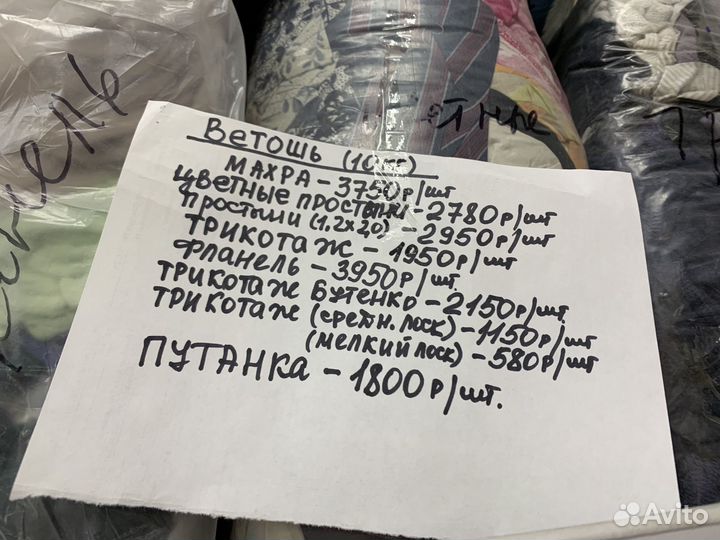 Ветошь (10кг)
МАХРА - 3750р/шт
ЦВЕТНЫЕ ПРОСТЫНИ - 2780р/шт
ПРОСТЫНИ (1,2х2,0) - 2950р/шт
ТРИКОТАЖ - 1950р/шт
ФЛАНЕЛЬ - 3950р/шт.
ТРИКОТАЖ БУТЕНКО - 2150р/шт.
ТРИКОТАЖ (средн. лоск) - 1150р/шт
(мелкий лоск) - 580р/шт
ПУТАНКА - 1800р/шт.
Avito